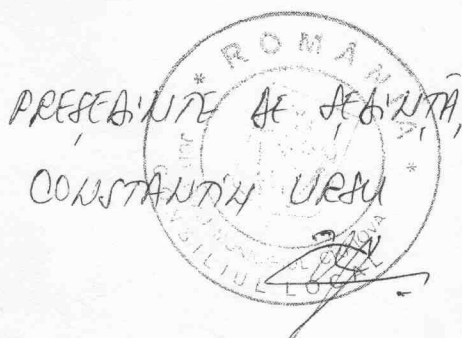 PREȘEDINTE DE ȘEDINȚĂ,
CONSTANTIN URSU
* ROMÂNIA *
CONSILIUL LOCAL